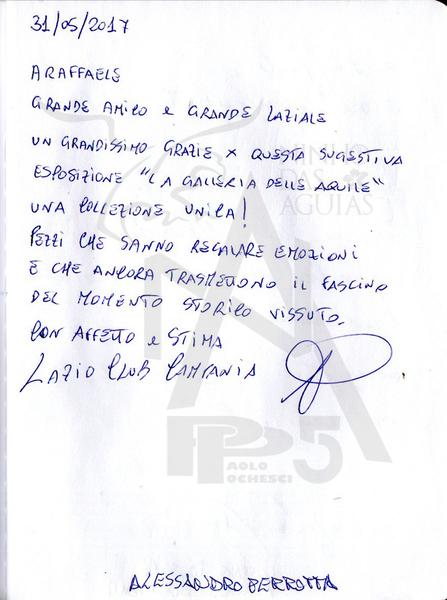 31/05/2017
A RAFFAELE
GRANDE AMICO E GRANDE LAZIALE
UN GRANDISSIMO GRAZIE X QUESTA SUGESTIVA
ESPOSIZIONE "LA GALLERIA DELLE AQUILE"
UNA COLLEZIONE UNICA!
PEZZI CHE SANNO REGALARE EMOZIONI
E CHE ANCORA TRASMETTONO IL FASCINO
DEL MOMENTO STORICO VISSUTO.
CON AFFETTO E STIMA
LAZIO CLUB CAMPANIA
DAS
AGUIAS
PP5
PAOLO
POCHESCI
ALESSANDRO BERROTTA